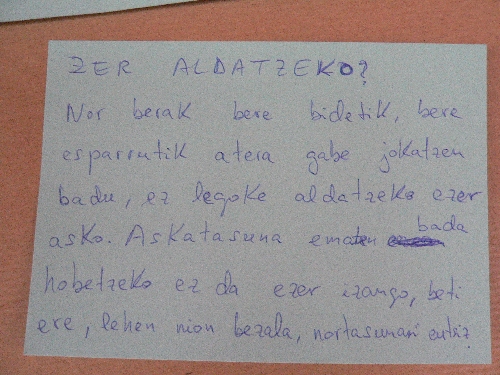 ZER ALDATZEKO?
Nor berak bere bidetik, bere
esparrutik atera gabe jokatzen
badu, ez legoke aldatzeko ezer
asko. Askatasuna ematen bada
hobetzeko ez da ezer izango, beti
ere, lehen nion bezala, nortasunari eutsiz